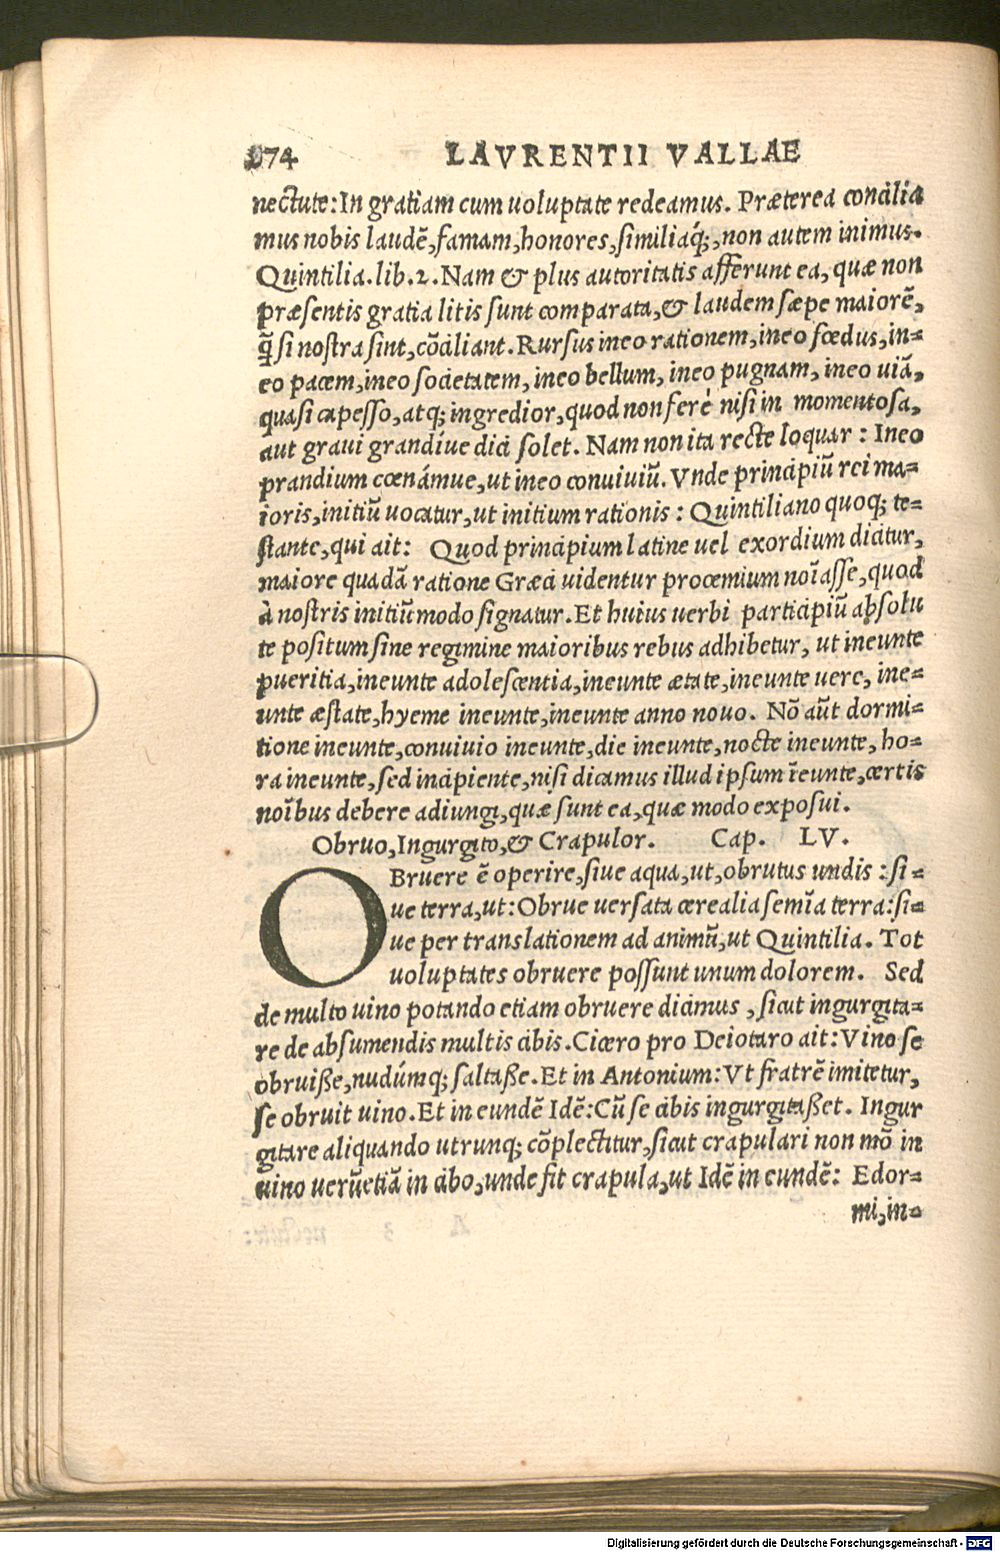 274 LAVRENTII VALLAE
nectute: In gratiam cum uoluptate redeamus. Præterea concilia
mus nobis laudẽ, famam, honores, similiaq́;, non autem inimus.
Quintilia. lib. 2. Nam & plus autoritatis afferunt ea, quæ non
præsentis gratia litis sunt comparata, & laudem sæpe maiorẽ,
q̃ si nostra sint, cõciliant. Rursus ineo rationem, ineo fœdus, in-
eo pacem, ineo societatem, ineo bellum, ineo pugnam, ineo uiã,
quasi capesso, atq; ingredior, quod non ferè nisi in momentosa,
aut graui grandíue dici solet. Nam non ita recte loquar: Ineo
prandium cœnámue, ut ineo conuiuiũ. Vnde principiũ rei ma-
ioris, initiũ uocatur, ut initium rationis: Quintiliano quoq; te-
stante, qui ait: Quod principium latine uel exordium dicitur,
maiore quadã ratione Græci uidentur procemium noĩasse, quod
à nostris initiũ modo signatur. Et huius uerbi participiũ absolu
te positum sine regimine maioribus rebus adhibetur, ut ineunte
pueritia, ineunte adolescentia, ineunte ætate, ineunte uere, ine-
unte æstate, hyeme ineunte, ineunte anno nouo. Nõ aũt dormi-
tione ineunte, conuiuio ineunte, die ineunte, nocte ineunte, ho-
ra ineunte, sed incipiente, nisi dicamus illud ipsum ĩeunte, certis
noĩbus debere adiungi, quæ sunt ea, quæ modo exposui.
Obruo, Ingurgito, & Crapulor. Cap. LV.
OBruere ẽ operire, siue aqua, ut, obrutus undis: si-
ue terra, ut: Obrue uersata cerealia semĩa terra: si-
ue per translationem ad animũ, ut Quintilia. Tot
uoluptates obruere possunt unum dolorem. Sed
de multo uino potando etiam obruere dicimus, sicut ingurgita-
re de absumendis multis cibis. Cicero pro Deiotaro ait: Vino se
obruiße, nudúmq; saltaße. Et in Antonium: Vt fratrẽ imitetur,
se obruit uino. Et in eundẽ Idẽ: Cũ se cibis ingurgitaßet. Ingur
gitare aliquando utrunq; cõplectitur, sicut crapulari non mõ in
uino uerũetiã in cibo, unde fit crapula, ut Idẽ in eundẽ: Edor-
mi, in-
Digitalisierung gefördert durch die Deutsche Forschungsgemeinschaft - DFG